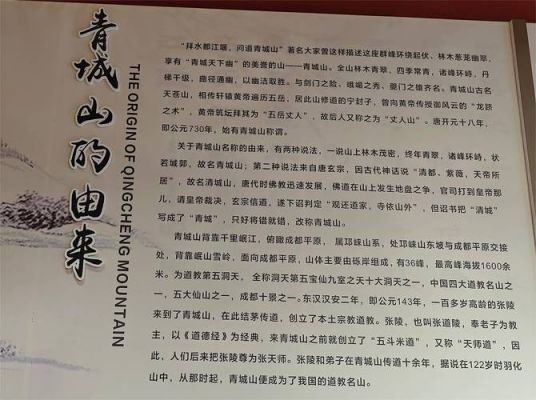 青城山的由来
THE ORIGIN OF QINGCHENG MOUNTAIN
“拜水都江堰，问道青城山”著名大家曾这样描述这座群峰环绕起伏、林木葱茏幽翠，
享有“青城天下幽”的美誉的山——青城山。全山林木青翠，四季常青，诸峰环峙，丹
梯千级，曲径通幽，以幽洁取胜。与剑门之险、峨嵋之秀、夔门之雄齐名。青城山古名
天苍山，相传轩辕黄帝遍历五岳，居此山修道的宁封子，曾向黄帝传授御风云的“龙跷
之术”，黄帝筑坛拜其为“五岳丈人”，故后人又称之为“丈人山”。唐开元十八年，
即公元730年，始有青城山称谓。
关于青城山名称的由来，有两种说法，一说山上林木茂密，终年青翠，诸峰环峙，状
若城郭，故名青城山；第二种说法来自唐玄宗，因古代神话说“清都、紫薇，天帝所
居”，故名清城山，唐代时佛教迅速发展，佛道在山上发生地盘之争，官司打到皇帝那
儿，请皇帝裁决，玄宗信道，遂下诏判定“观还道家，寺依山外”，但诏书把“清城”
写成了“青城”，只好将错就错，改称青城山。
青城山背靠千里岷江，俯瞰成都平原，属邛崃山系，处邛崃山东坡与成都平原交接
处，背靠岷山雪岭，面向成都平原，山体主要由砾岸组成，有36峰，最高峰海拔1600余
米。为道教第五洞天，全称洞天第五宝仙九室之天十大洞天之一，中国四大道教名山之
一，五大仙山之一，成都十景之一。东汉汉安二年，即公元143年，一百多岁高龄的张陵
来到了青城山，在此结茅传道，创立了本土宗教道教。张陵，也叫张道陵，奉老子为教
主，以《道德经》为经典，来青城山之前就创立了“五斗米道”，又称“天师道”，因
此，人们后来把张陵尊为张天师。张陵和弟子在青城山传道十余年，据说在122岁时羽化
山中，从那时起，青城山便成为了我国的道教名山。